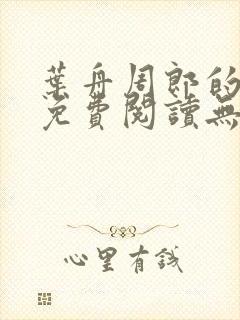 葉舟周郎的
免費閱讀無
心里有錢